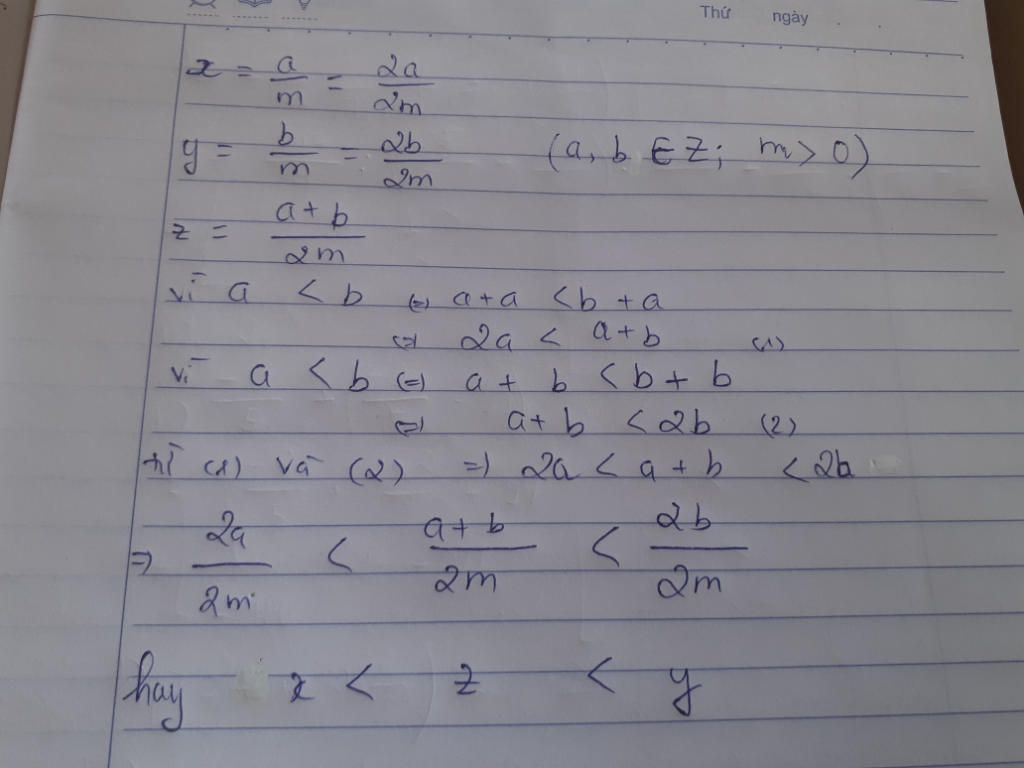 Thứ ngày
x = a/m = 2a/2m
y = b/m = 2b/2m (a, b ∈ Z; m > 0)
z = a+b/2m
vì a < b (=) a+a < b+a
(=) 2a < a+b (1)
vì a < b (=) a + b < b + b
(=) a+b < 2b (2)
từ (1) và (2) =) 2a < a + b < 2b
=) 2a/2m < a+b/2m < 2b/2m
hay x < z < y